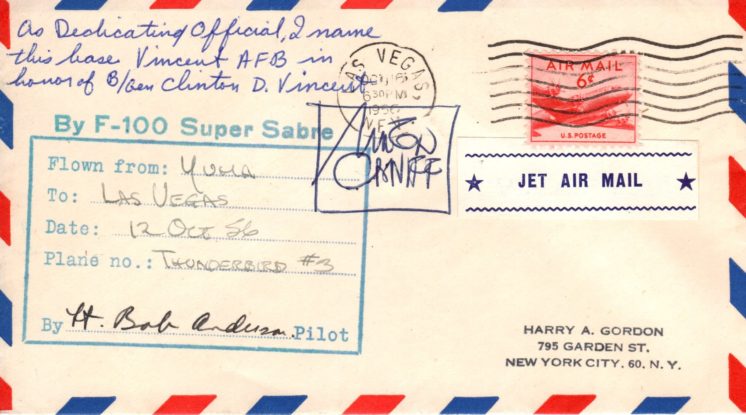 As Dedicating Official, I name
this base Vincent AFB in
honor of B/Gen Clinton D. Vincent
LAS VEGAS
6 30 PM
1956
NEV.
AIR MAIL
6¢
U.S. POSTAGE
By F-100 Super Sabre
Milton
Caniff
★ JET AIR MAIL ★
Flown from: Yuma
To: Las Vegas
Date: 12 Oct 56
Plane no.: Thunderbird #3
By H. Bob Anderson Pilot
HARRY A. GORDON
795 GARDEN ST.
NEW YORK CITY. 60. N. Y.